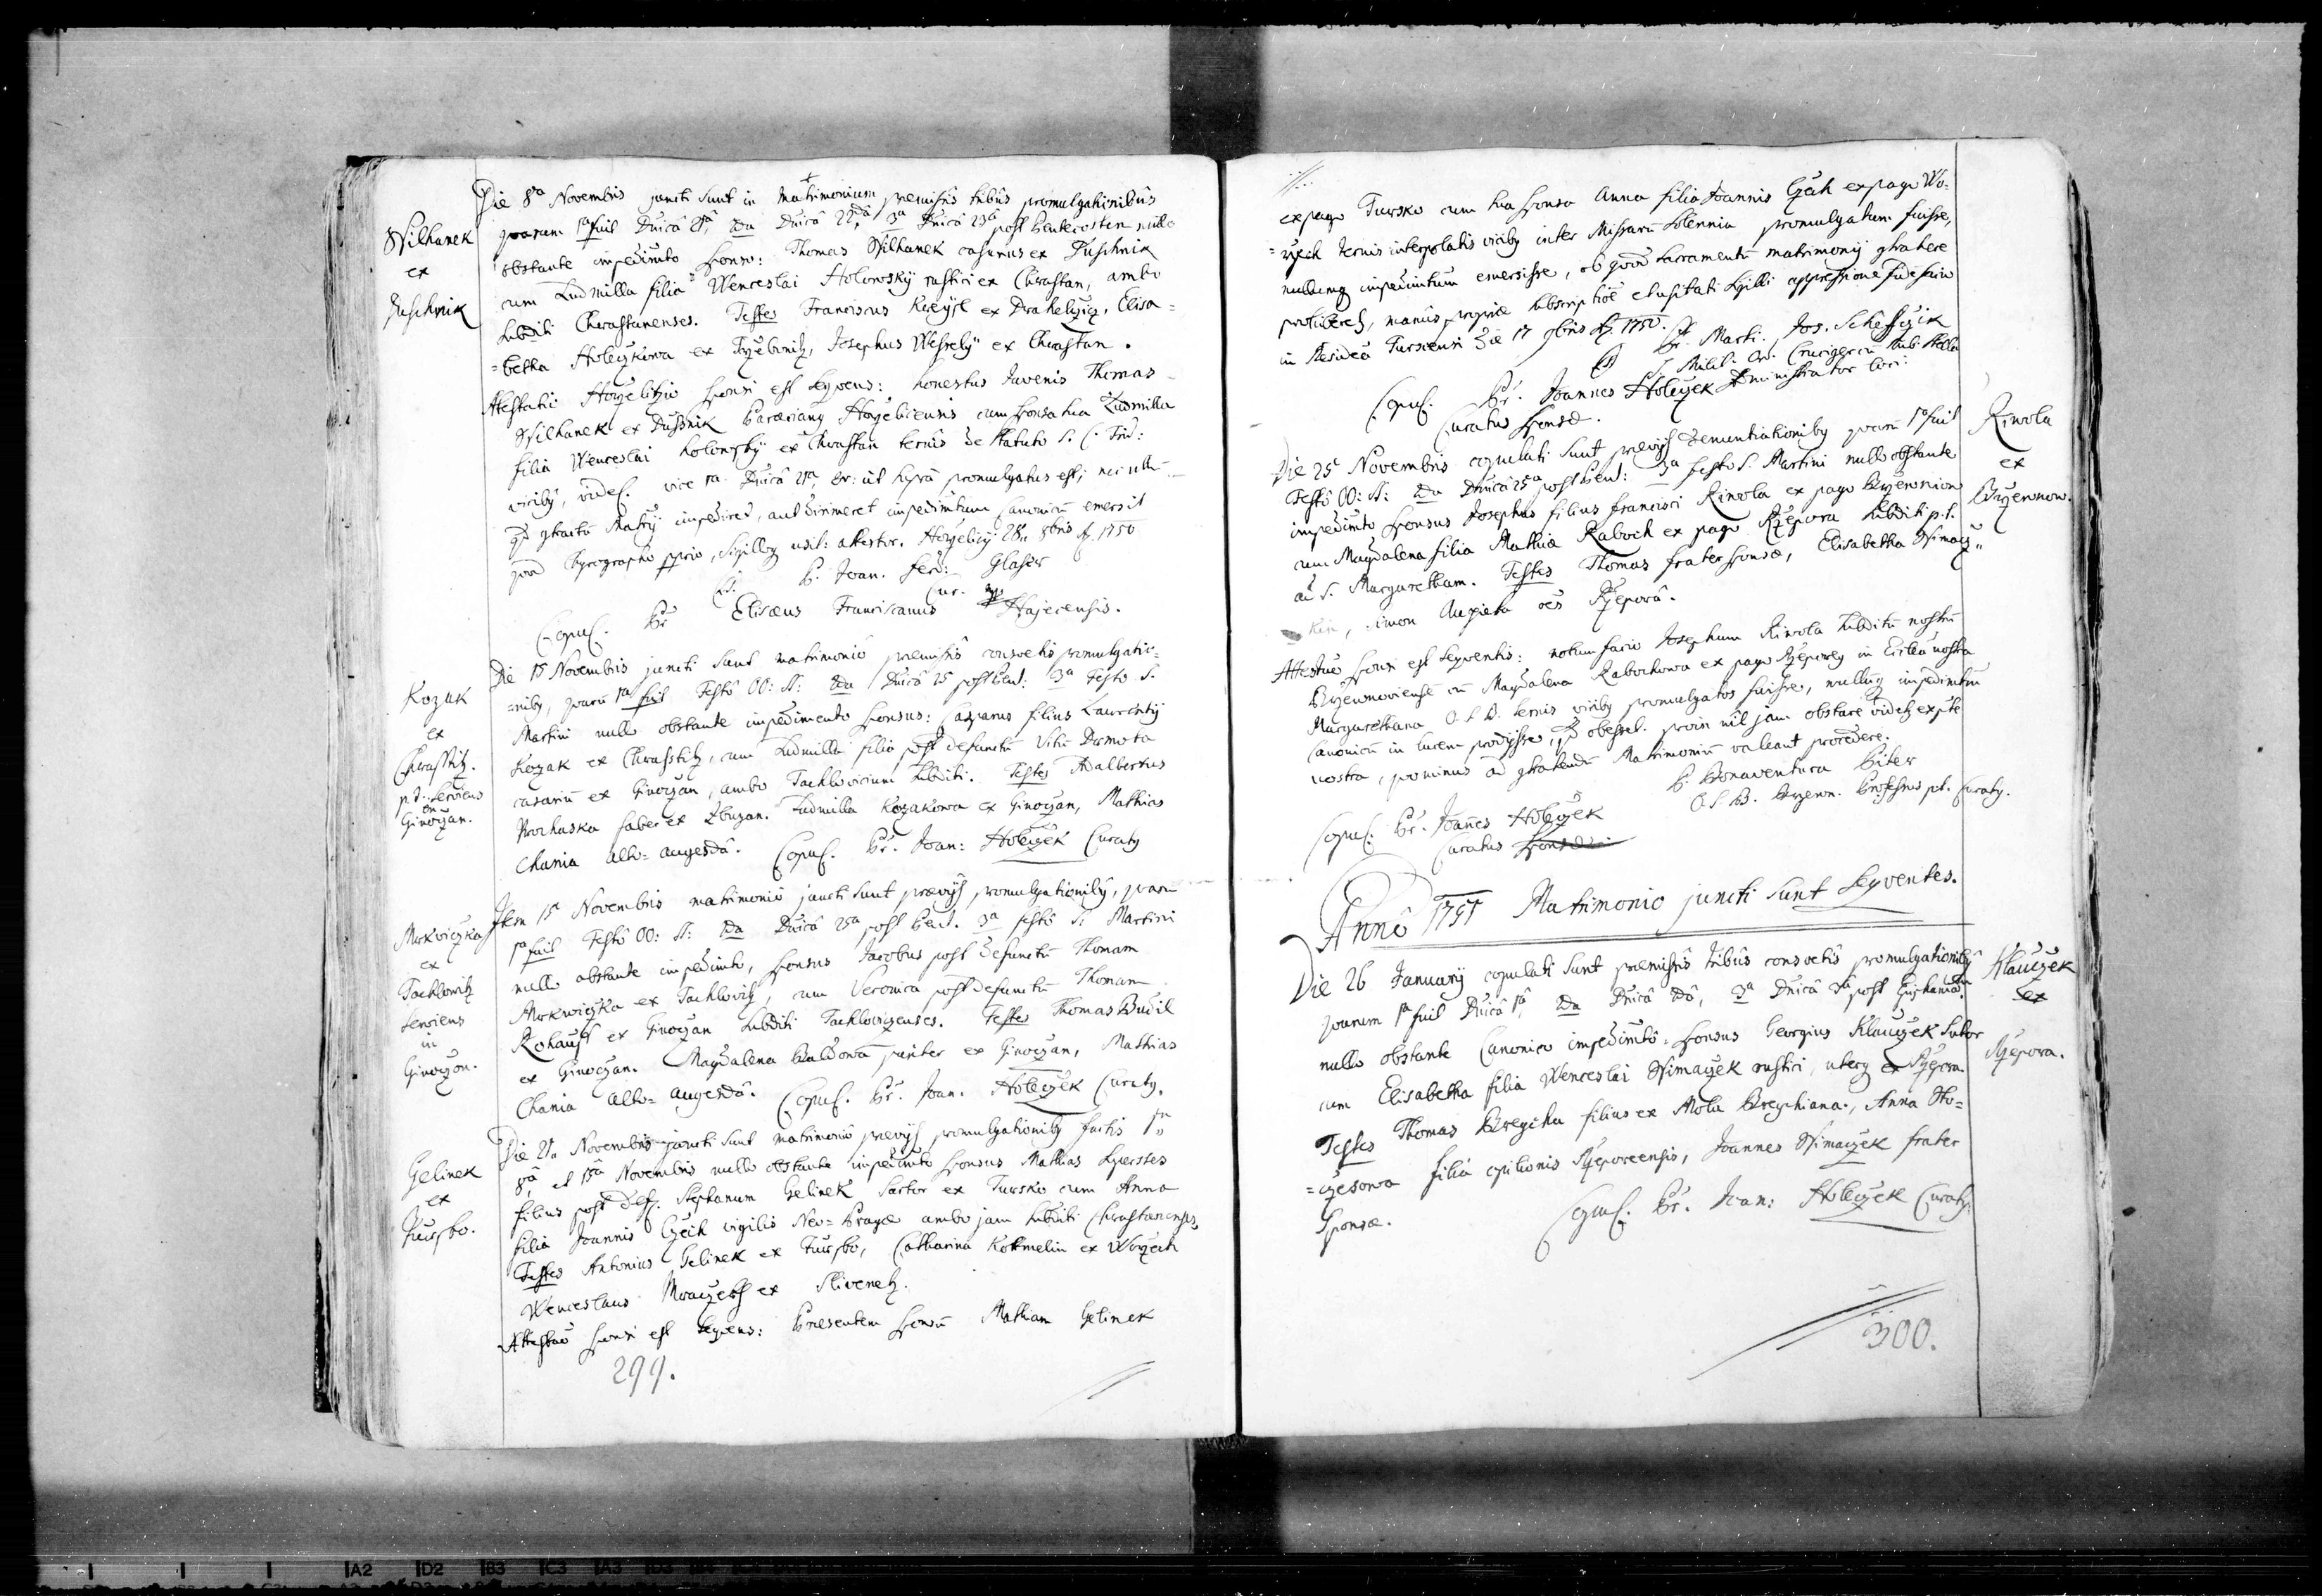 Die 8va Novembris juncti sunt in Matrimonium praemissis tribus promulgationibus
quarum 1ma fuit Dnica 21a, 2da Dnica 22da, 3a Dnica 23a post Pentecosten nullo
Silhanek
ex
Duschnik
obstante impedimto sponso: Thomas Silhanek casarius ex Duschnik
cum Ludmilla filia Wenceslai Holowsky rustici ex Chrastan, ambo
subditi Chrastanenses. Testes Franciscus ex Drahelczicz, Elisa=
=betha Holeczkowa ex Trzebonitz, Josephus Wessely ex Chrastan.
Attestatio Horzelitzio sponsi est seqvens: honestus Juvenis Thomas
Silhanek ex Dussnik Horzeliciensis cum sponsa sua Ludmilla
filia Wenceslai holowsky ex Chrastan ternis de statuto S. C. Trid:
vicibq, videl. vice 1ma Dnica 21a, etc: ut supra promulgatus est; nec ullu
qd gtractu Matrij impediret, aut dirimeret impedimtum Canonicu emersit
quod Chyrographo pprio, Sigilloq usit: attestor. Horzelicij 28a 8bris A. 1750
P. Joan. Ferd: Glaser
Cur.
Copul. Pr Elisaeus Franciscanus Hajecensis.
Die 15 Novembris juncti sunt matrimonio praemissis consvetis promulgatio=
Kozak
ex
Chrasstitz.
p.t. serviens
in
Ginoczan.
=nibq, quaru 1ma fuit Festo OO: SS: 2da Dnica 25 post Pent: 3a Festo S.
Martini nullo obstante impedimento sponsus: Casparus filius Laurentij
Kozak ex Chrasstitz, cum Ludmilla filia post defunctu Vitu Drmota
casariu ex Ginoczan, ambo Tachlovicium subditi. Testes Adalbertus
Prochaska faber ex Zbuzan. Ludmilla Kozakowa ex Ginoczan, Mathias
Chania albo=augezda. Copul. Pr. Joan: Holeczek Curatq
Item 15a Novembris matrimonio juncti sunt praevijs promulgationibq, quaru
Mrkviczka
ex
Tachlowitz
serviens
in
Ginoczan.
1ma fuit Festo OO: SS: 2da Dnica 25a post Pent. 3a festo S. Martini
nullo obstante impedimto, sponsus Jacobus post defunctu Thomam
Mrkwiczka ex Tachlovitz, cum Veronica post defunctu Thomam
Rohauss ex Ginoczan subditi Tachlovizenses. Testes Thomas Budil
ex Ginoczan. Magdalena Baldowa pariter ex Ginoczan, Mathias
Chania albo=augezda. Copul. Pr. Joan. Holeczek Curatq.
Die 21a Novembris juncti sunt matrimonio praevijs promulgationibq factis 1a
Gelinek
ex
Tursko.
8a, et 15a Novembris nullo obstante impedimto sponsus Mathias
filius post def. Stephanum Gelinek Sartor ex Tursko cum Anna
filia Joannis Czech vigilis Neo=Pragae ambo jam subditi Chrastanenses
Testes Antonius Gelinek ex Tursko, Catharina Kottmelin ex Worzech
Wenceslaus ex Slivenetz.
Attestatio sponsi est seqvens: Praesentem sponsu Mathiam Gelinek
299.
ex pago Tursko cum sua sponsa Anna filia Joannis Czech ex pago Wo=
=rzech ternis interpolatis vicibq inter Missaru solennia promulgatum fuisse,
nullumq impedimtum emersisse, ob quod sacramentu matrimonij gtrahere
prohiberet, manus propriae subscriptioe et usitati sigilli appressione fidem facio
in Residea Turscensi die 17 9bris A. 1750. Fr. Marti. Jos. Scheffczik
S. Milit. Ord. Crucigeru Rub. Stella
Copul. Pr. Joannes Holeczek Administrator loci:
Curatus sponsae.
Die 25a Novembris copulati sunt praevijs denuntiationibq quaru 1ma fuit
Rinola
ex
Brzewnow.
Festo OO: SS: 2da Dnica 25a post Pent: 3a festo S. Martini nullo obstante
impedimto, sponsus Josephus filius Francisci Rinola ex pago Brzewniow
cum Magdalena filia Mathiae Raboch ex pago Rzepora subditi p.t.
ad S. Margaretham. Testes Thomas frater sponsae, Elisabetha Simacz,,
Auxieta oes Rzepora.
Attestatio sponsi est seqventis: notum facio Josephum Rinola subditu nostru
Brzewnoviensem cu Magdalena Rabochowa ex pago Rzeporey in Ecclea nostra
Margarethana O.S.B. ternis vicibq promulgatos fuisse, nullumq impedimtum
canonicu in lucem prodijsse, qd obesset. proin nil jam obstare videtq ex pte
nostra, quominus ad gtrahendu Matrimoniu valeant procedere.
P. Bonaventura Piter
O.S.B. Brzewn. Professus pt. Curatq.
Copul. Pr. Joannes Holeczek
Curatus
Anno 1751 Matrimonio juncti sunt seqventes.
Die 26 Januarij copulati sunt praemissis tribus consvetis promulgationibq
Klauczek
ex
Rzepora.
quarum 1ma fuit Dnica 1a, 2da Dnica 2da, 3a Dnica 3a post Epiphaniam
nullo obstante Canonico impedimto. sponsus Georgius Klauczek sutor
cum Elisabetha filia Wenceslai Simaczek rustici, uterq ex Rzepora.
Testes Thomas Brzeziha filius ex Mola Brzezhiana, Anna Sto=
=czesowa filia opilionis Rzeporeensis, Joannes Simaczek frater
Sponsae. Copul. Pr. Joan: Holeczek Curatq.
300.